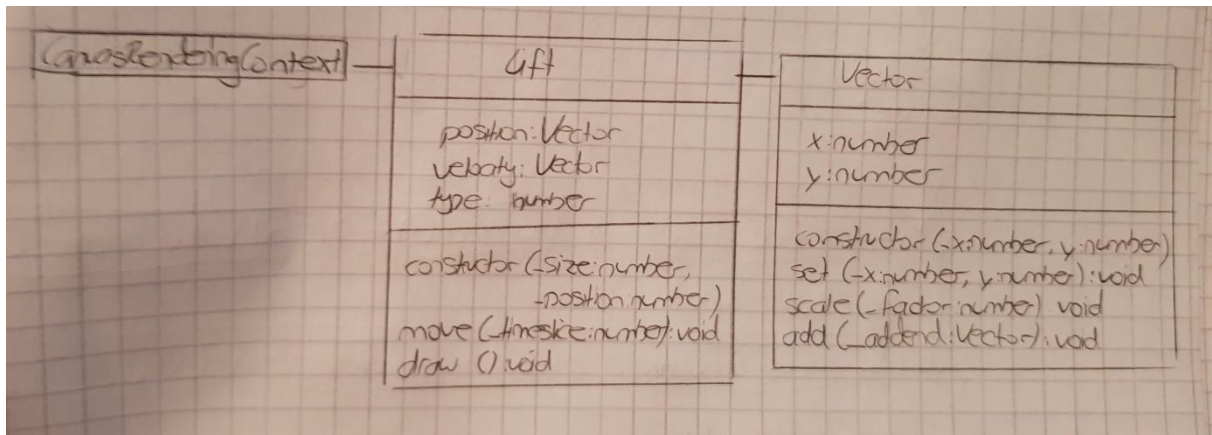 CanvasRenderingContext
Lift
position: Vector
velocity: Vector
type: number
constuctor (_size:number,
_position:number)
move (_timeslice:number):void
draw ():void
Vector
x:number
y:number
constructor (_x:number, y:number)
set (_x:number, y:number):void
scale (_factor:number) void
add (_addend:Vector):void